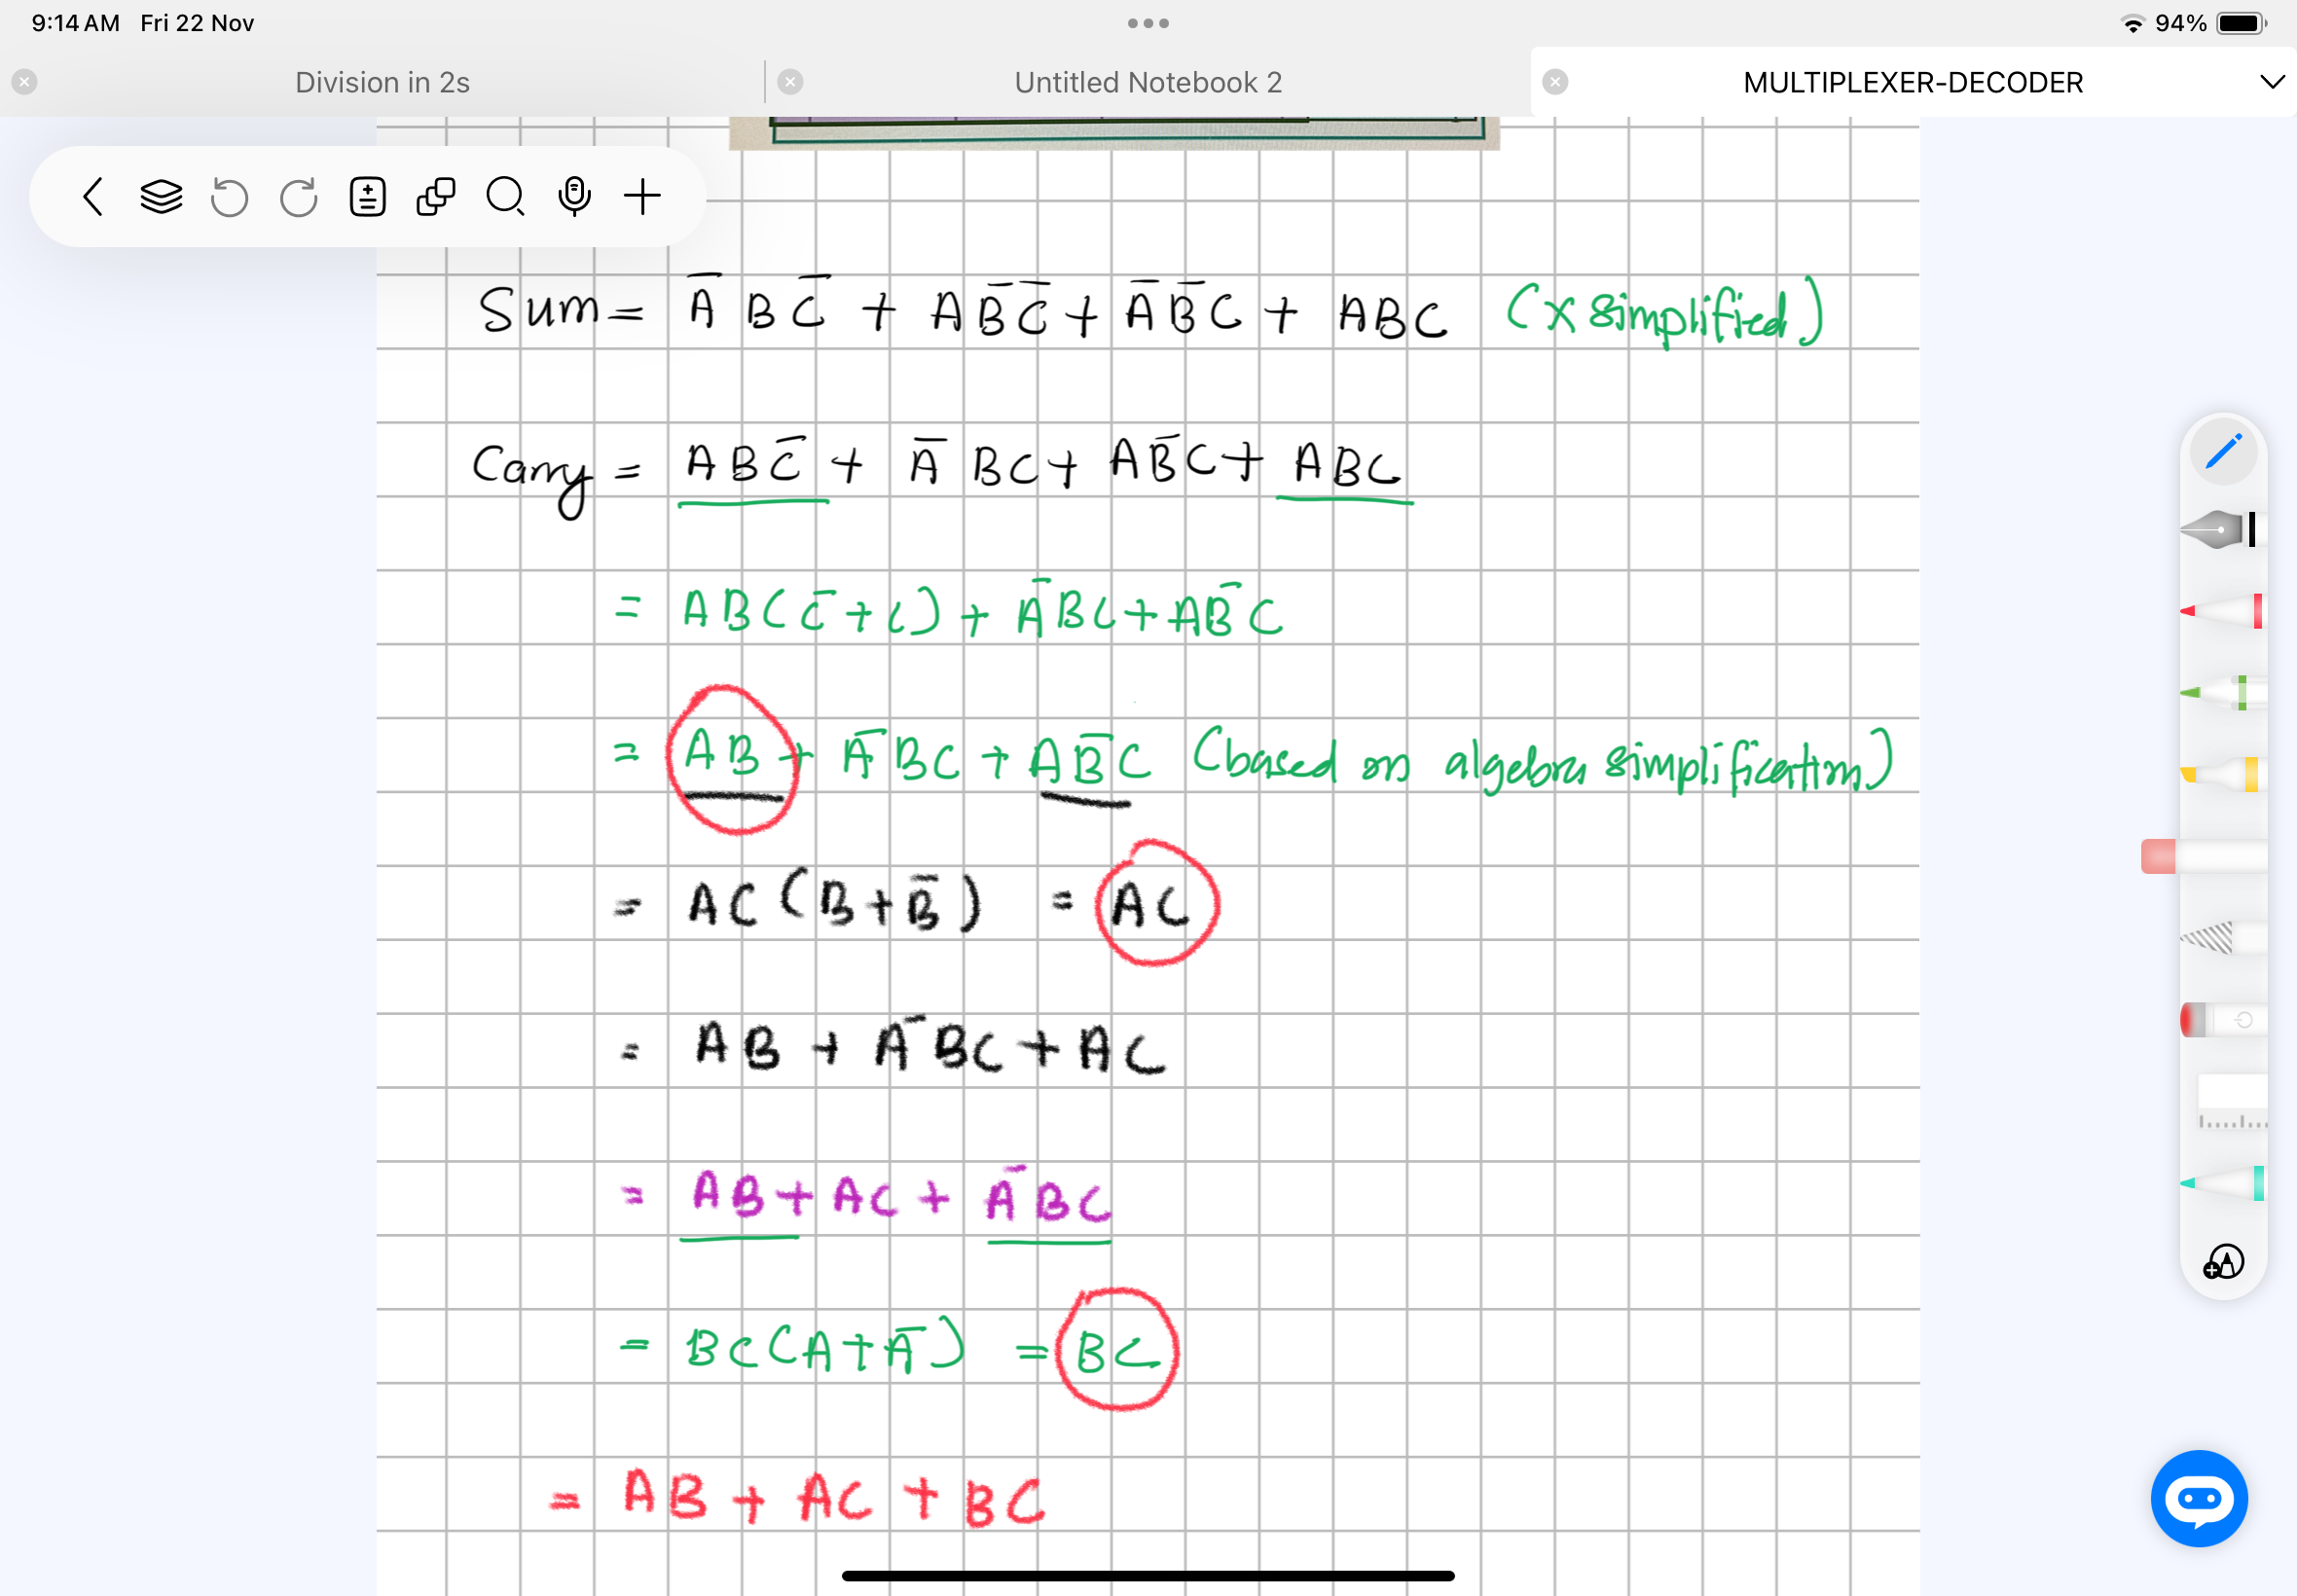 9:14 AM Fri 22 Nov 94%
Division in 2s Untitled Notebook 2 MULTIPLEXER-DECODER
Sum = A̅ B C̅ + A B̅ C̅ + A̅ B̅ C + ABC (x simplified)
Carry = A B C̅ + A̅ B C + A B̅ C + ABC
= AB(C̅ + C) + A̅ B C + A B̅ C
= AB + A̅ B C + A B̅ C (based on algebra simplification)
= AC (B + B̅) = AC
= AB + A̅ B C + AC
= AB + AC + A̅ B C
= BC (A + A̅) = BC
= AB + AC + BC